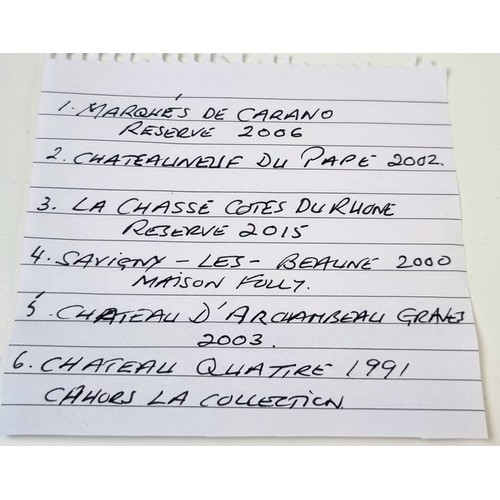 1. MARQUÉS DE CARANO
RESERVE 2006
2. CHATEAUNEUF DU PAPE 2002.
3. LA CHASSE COTES DU RHONE
RESERVE 2015
4. SAVIGNY - LES - BEAUNE 2000
MAISON FOLLY.
5. CHATEAU D'ARCHAMBEAU GRAVES
2003.
6. CHATEAU QUATIRE 1991
CAHORS LA COLLECTION